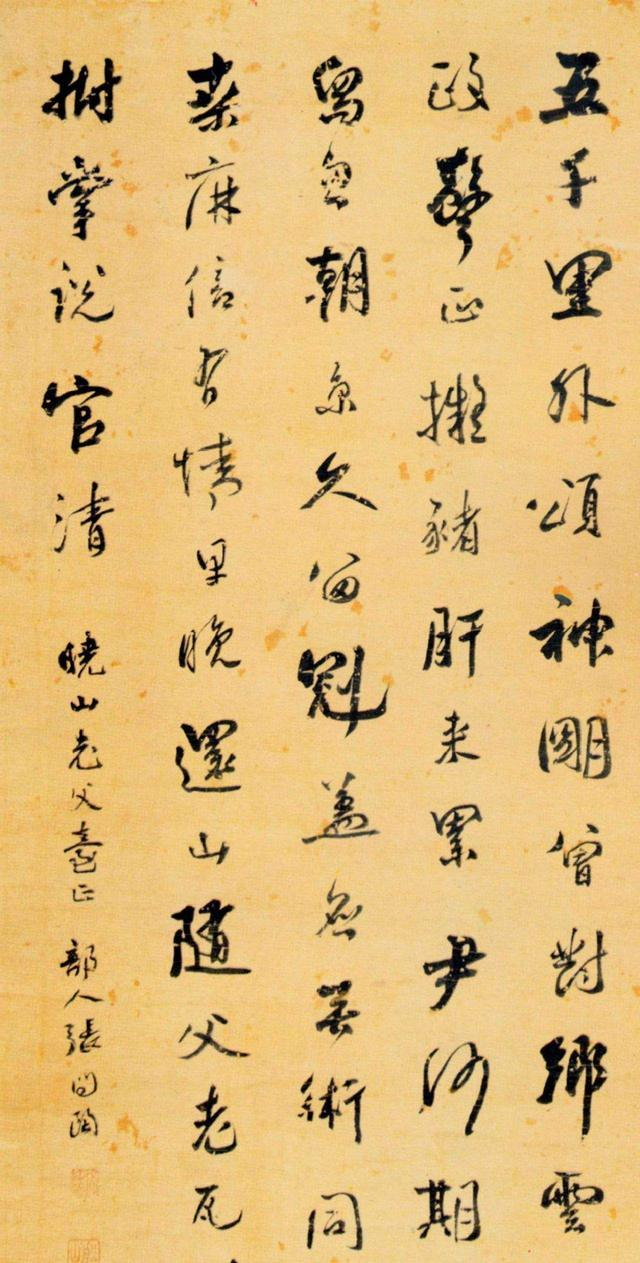 五千里外頌神朙曾對鄉雲
政聲正擬豬肝来累尹何期
舄忽朝京久留冠蓋無術同
桑麻信有情早晚還山隨父老瓦
拊掌說官清
曉山老父臺正 部人張問陶